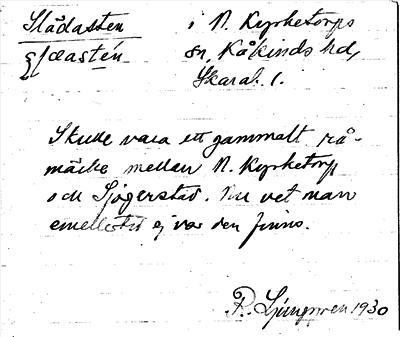 Slädasten i N. Kyrketorps
sn, Kåkinds hd,
Skarab. l.
Skulle vara ett gammalt rå-
märke mellan N. Kyrketorp
och Sjögerstad. Nu vet man
emellertid ej var den finns.
R. Ljunggren 1930